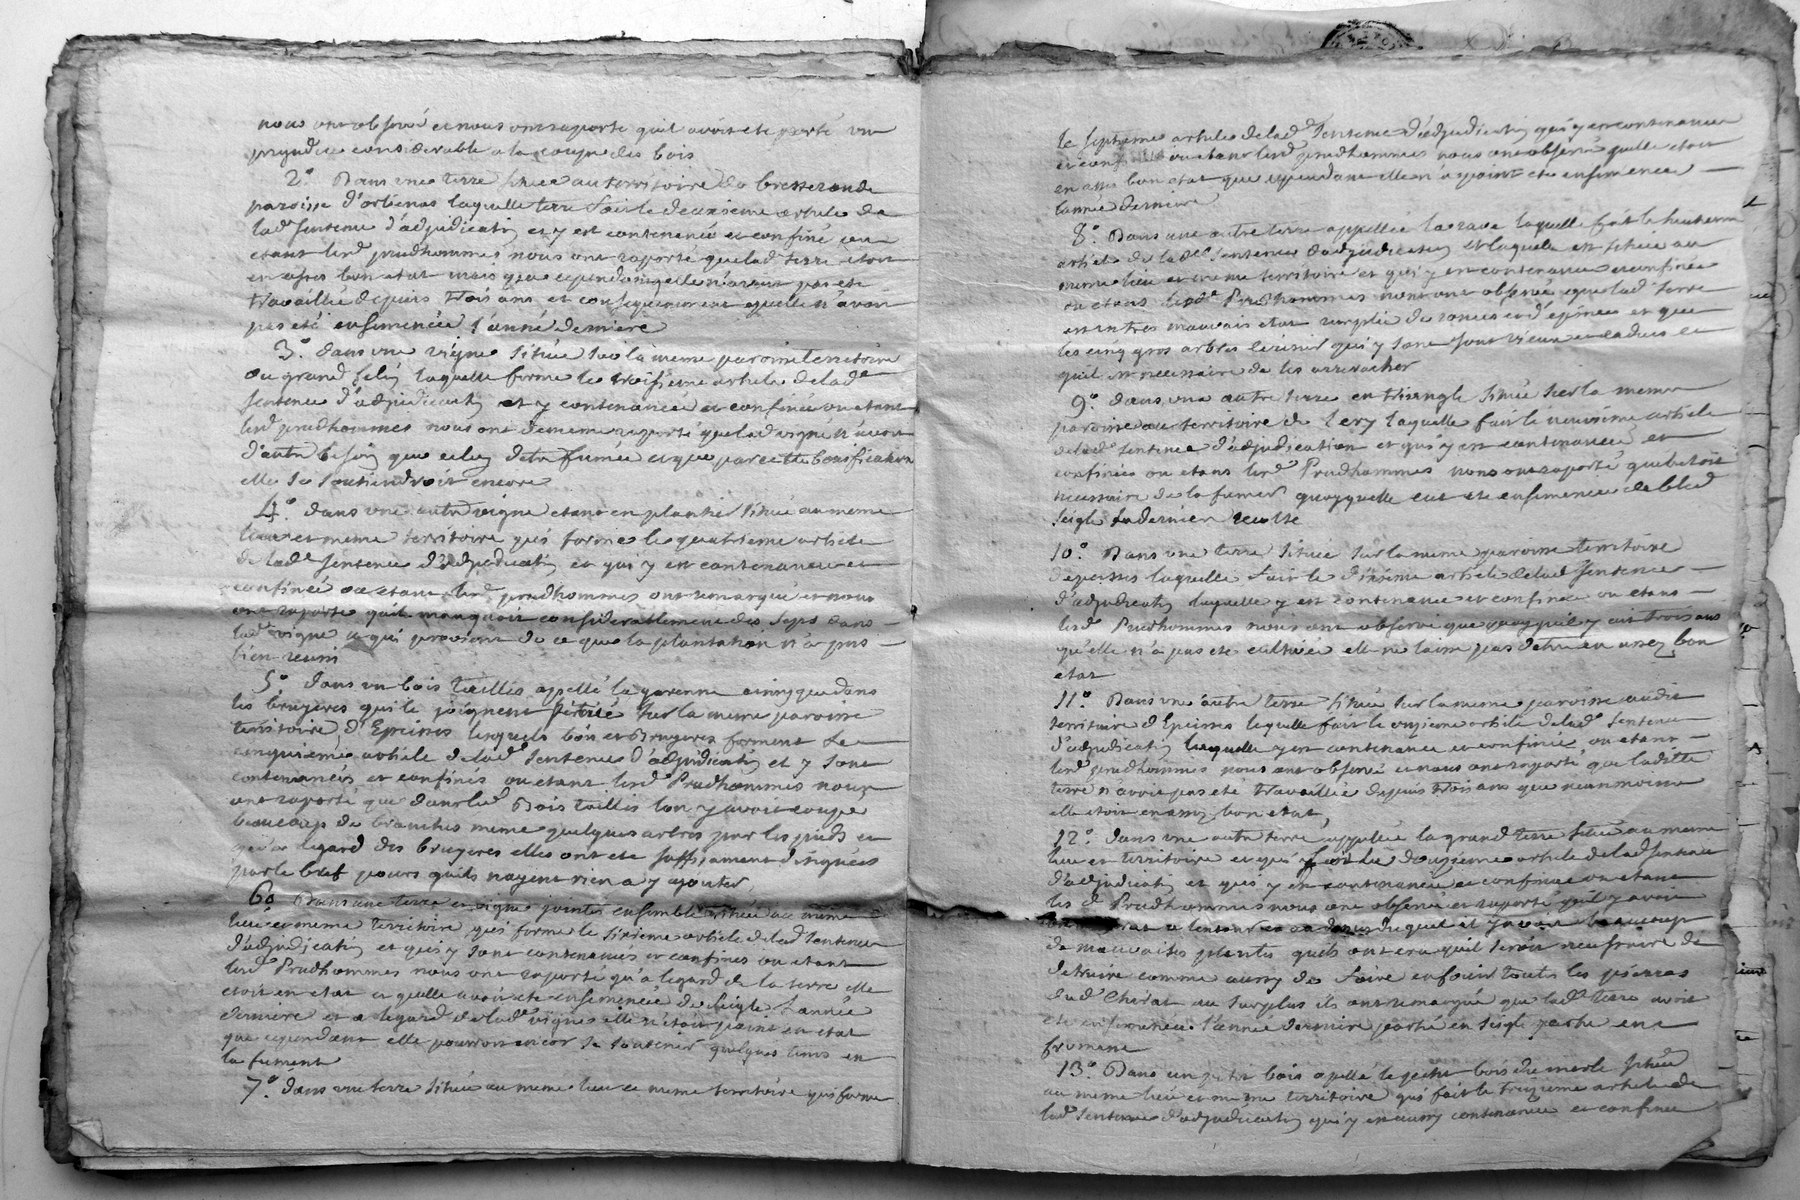 nous ont observé et nous ont raporté quil avoit eté porté un
prejudice considerable a la coupe des bois
2° Dans une terre situee au territoire de bresserande
paroisse d'orlienas laquelle terre fait le deuxieme article de
lad Sentence d'adjudicatio et y est contenancé et confiné ou
etant lesd prudhommes nous ont raporté que lad terre etoit
en asses bon etat mais que cependant elle n'avoit pas eté
travaillée depuis trois ans et consequemment quelle n'avoit
pas eté ensemencée l'anné derniere
3° dans une vigne située sur la meme paroisse territoire
du grand laquelle forme le troisieme article de lade
sentence d'adjudicatio et y contenancée et confinée ou etant
lesd prudhommes nous ont de meme raporté que lad vigne n'avoit
d'autre besoin que celuy d'etre fumée et que par cette bonification
elle se soutiendroit encore
4° dans une autre vigne etant en plantier située au meme
lieu et meme territoire qui forme le quatrieme article
de lade sentence d'adjudicatio et qui y est contenancée et
confinée ou etant lesd prudhommes ont remarqué et nous
ont raporté quil manquoit considerablement des seps dans
lade vigne ce qui provient de ce que la plantation n'a pas
bien reussi
5° dans un bois taillis appellé la garenne ainsy que dans
les bruyeres qui le joignent située sur la meme paroisse
territoire d'Epeisses lesquels bois et Bruyeres forment le
cinquieme article de lade Sentence d'adjudicatio et y sont
contenancés et confinés ou etant lesd Prudhommes nous
ont raporté que dans led Bois taillis lon y avoit coupé
beaucoup de branches meme quelques arbres par les pieds et
qu'a legard des bruyeres elles ont eté suffisament
par le bref pour quils nayent rien a y ajouter
6° Dans une terre et vigne jointes ensemble située au meme
lieu et meme territoire qui forme le sixieme article de lad Sentence
d'adjudicatio et qui y sont contenancés et confinés ou etant
lesd Prudhommes nous ont raporté qu'a legard de la terre elle
etoit en etat et quelle avoit eté ensemencée de seigle l'année
derniere et a legard de lade vigne elle n'etoit point en etat
que cependant elle pourroit encor se soutenir quelques tems en
la fumant
7° dans une terre située au meme lieu et meme territoire qui forme
le septieme article de lade Sentence d'adjudicatio qui y est contenancée
et confinée ou etant lesd prudhommes nous ont observé quelle etoit
en asses bon etat que cependant elle n'a point eté ensemencée
lannée derniere
8° Dans une autre terre appellée la rave laquelle fait le huitieme
article de lade Sentence d'adjudicatio et laquelle est située au
meme lieu et meme territoire et qui y est contenancée et confinée
ou etant lesde Prudhommes nous ont observé que lade terre
est en tres mauvais etat remplie de ronces et d'epines et que
les cinq gros arbres qui y sont sont vieux et caducs et
quil est necessaire de les arracher
9° dans une autre terre en triangle située sur la meme
paroisse au territoire de laquelle fait le neuvieme article
de lad sentence d'adjudication et qui y est contenancée et
confinée ou etant lesd Prudhommes nous ont raporté quil etoit
necessaire de la fumer quoyquelle eut eté ensemencée de bled
seigle la derniere recolte
10° Dans une terre située sur la meme paroisse territoire
d'epeisses laquelle fait le dixieme article de lad Sentence
d'adjudicatio laquelle y est contenancée et confinée ou etant
lesd Prudhommes nous ont observé que quoyquil y ait trois ans
qu'elle n'a pas eté cultivée elle ne laisse pas d'etre en assez bon
etat
11° Dans une autre terre située sur la meme paroisse audit
territoire d'Epeisses laquelle fait le onzieme article de lade Sentence
d'adjudicatio laquelle y est contenancée et confinée ou etant
lesd prudhommes nous ont observé et nous ont raporté que laditte
terre n'avoit pas eté travaillée depuis trois ans que neanmoins
elle etoit en assez bon etat
12° dans une autre terre appellée la grand terre située au meme
lieu et territoire et qui fait le douzieme article de lad Sentence
d'adjudicatio et qui y est contenancée et confinée ou etant
lesd Prudhommes nous ont observé et raporté quil y avoit
a lentour et au dessus duquel il y avoit beaucoup
de mauvaises plantes quils ont cru quil seroit necessaire de
detruire comme aussy de faire enfouir toutes les pierres
dud Cherat au surplus ils ont remarqué que lade terre avoit
eté ensemencée l'année derniere partie en seigle partie en
froment
13° Dans un petit bois apellé le petit bois du merle située
au meme lieu et meme territoire qui fait le treizieme article de
lade Sentence d'adjudicatio qui y est aussy contenancé et confiné